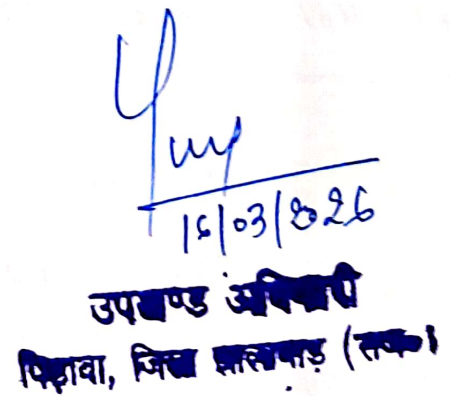 16/03/2026
उपखण्ड अधिकारी
पिड़ावा, जिला झालावाड़ (राज०)